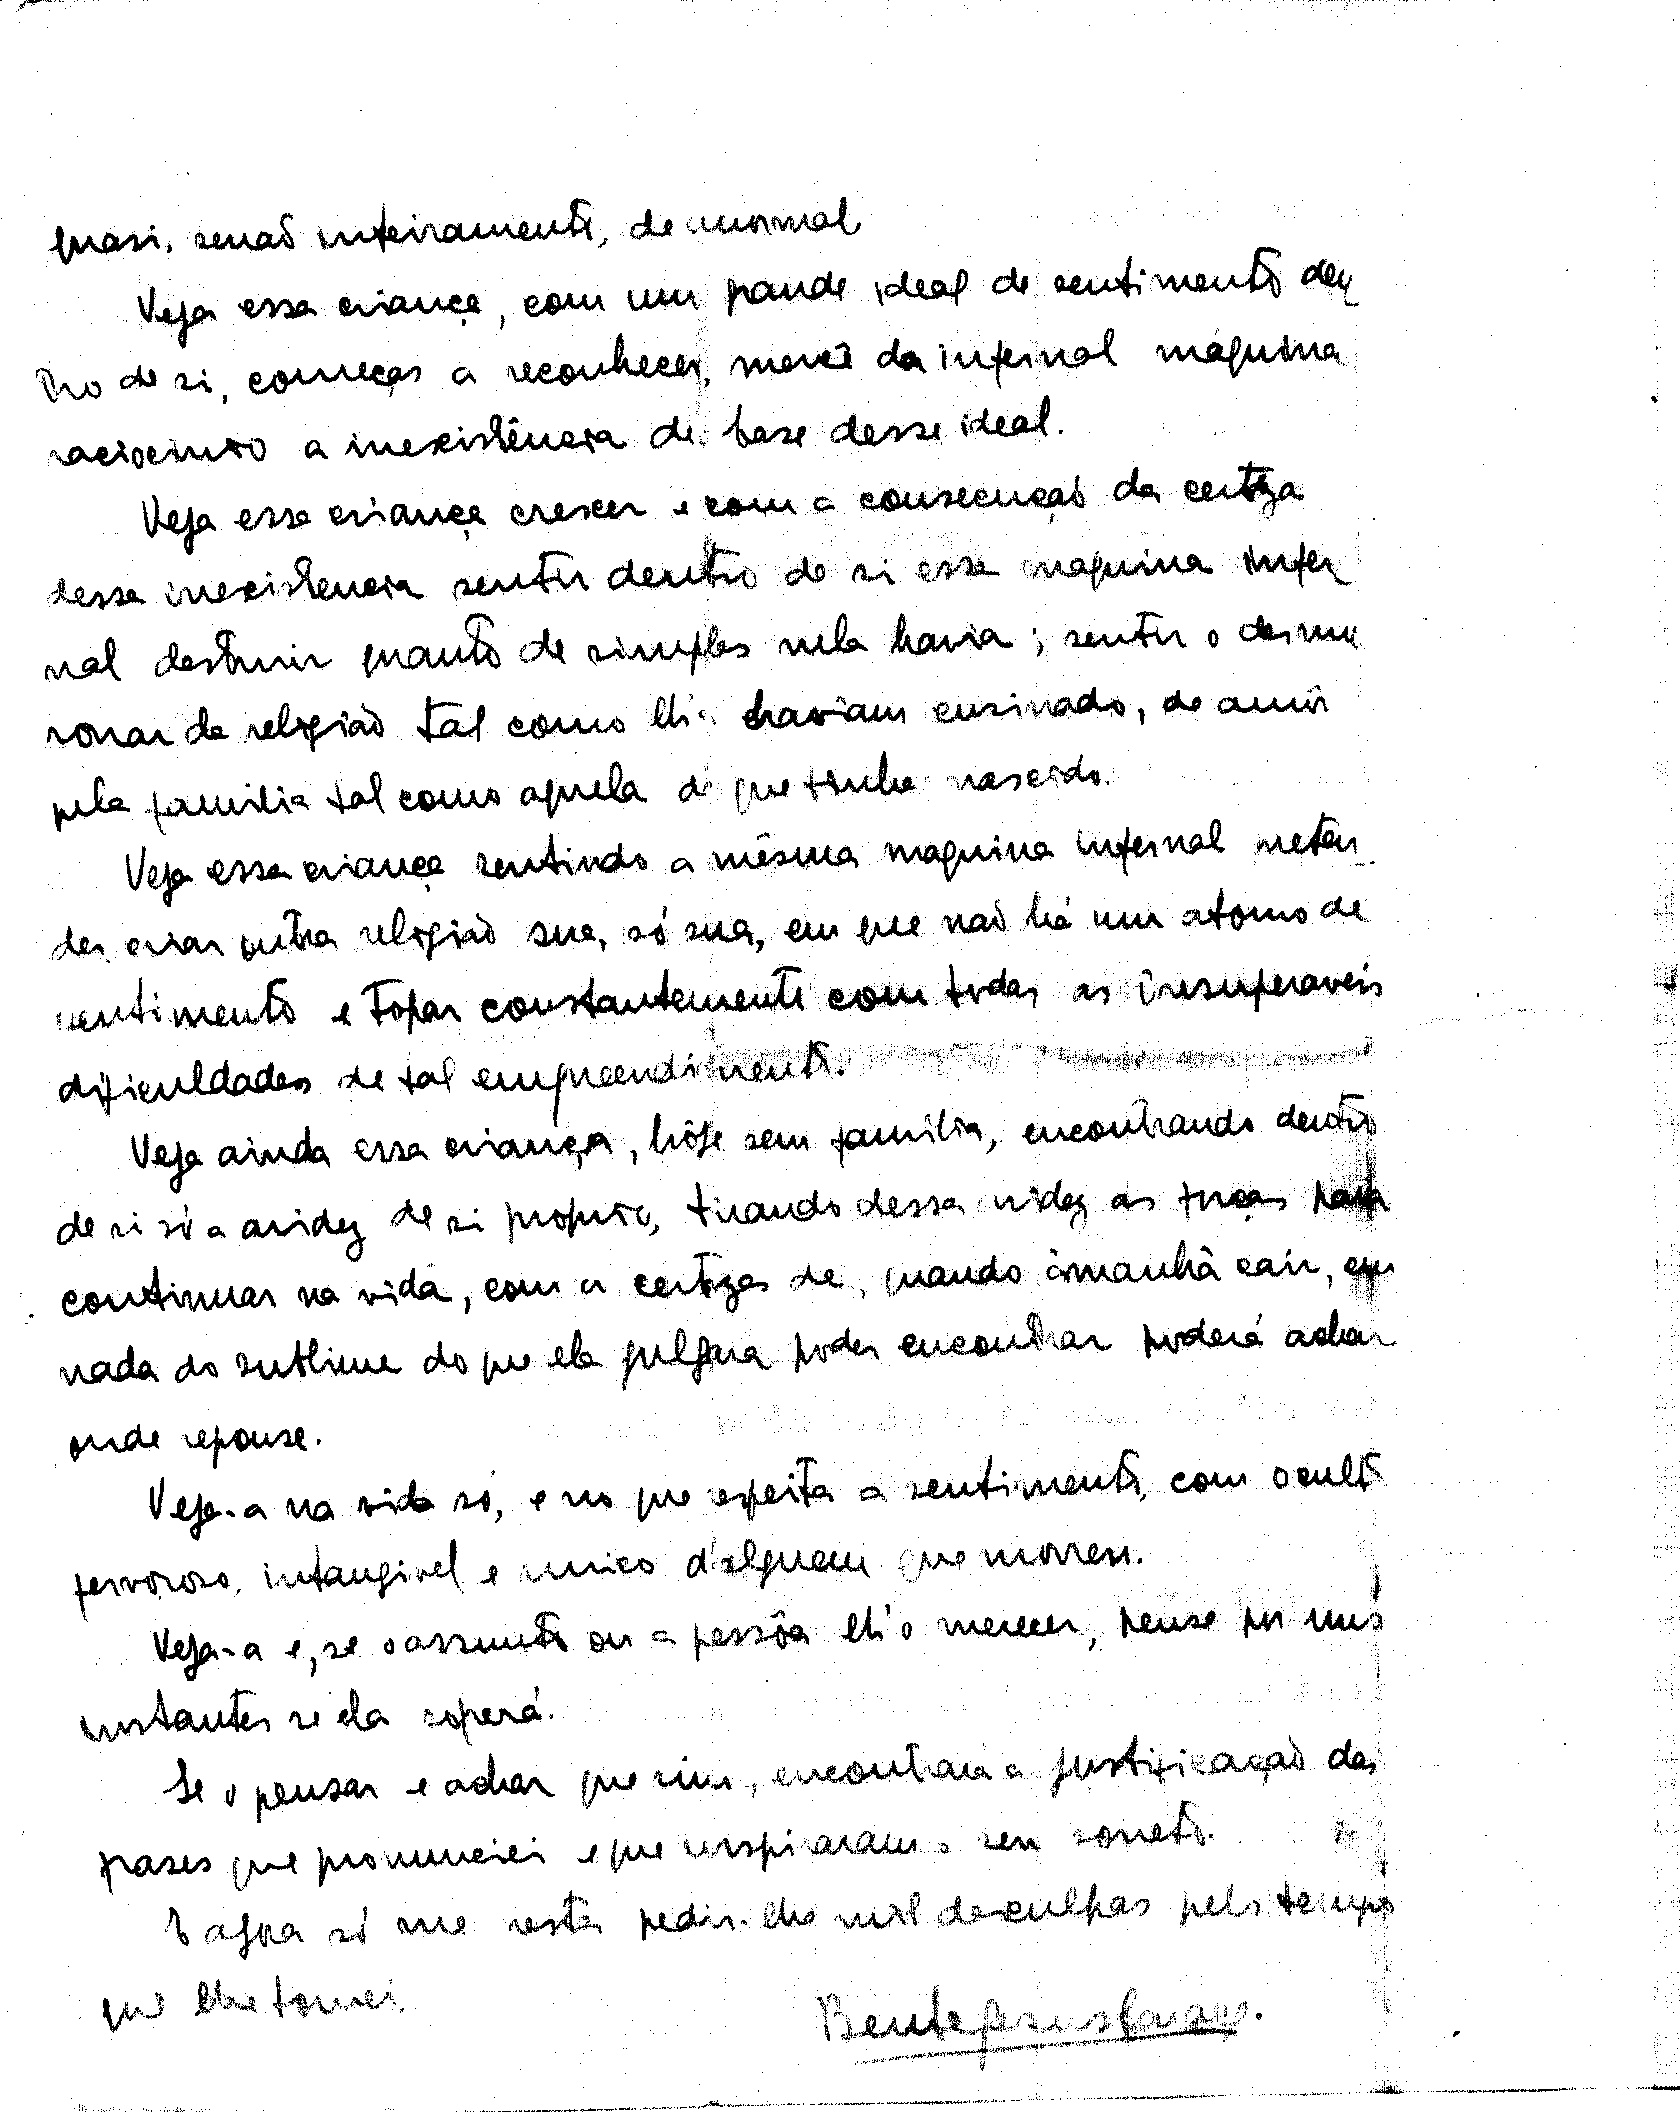 quasi, senaõ inteiramente, de anormal
Veja essa criança, com um grande ideal de sentimento den
tro de si, começar a reconhecer, mercê da infernal máquina
raciocinio a inexistência de base desse ideal.
Veja essa criança crescer e com a consecuçaõ da certeza
dessa inexistencia sentir dentro de si essa maquina infer
nal destruir quanto de simples nela havia; sentir o desmo
ronar da religiaõ tal como lh'a haviam ensinado, de amôr
pela familia tal como aquela de que tinha nascido.
Veja essa criança sentindo a mêsma maquina infernal preten
der criar outra religiaõ sua, só sua, em que naõ há um atomo de
sentimento e topar constantemente com todas as insuperaveis
dificuldades de tal empreendimento.
Veja ainda essa criança, hôje sem familia, encontrando dentro
de si só a aridez de si proprio, tirando dessa aridez as forças para
continuar na vida, com a certeza de, quando àmanhã cair, em
nada do sublime do que ela julgara poder encontrar poderá achar
onde repouse.
Veja-a na vida só, e no que respeita a sentimento, com o culto
fervoroso, intangivel e unico d'alguem que morreu.
Veja-a e, se o assunto ou a pessôa lh'o merecer, pense por uns
instantes se ela sofrerá.
Se o pensar e achar que sim, encontrará a justificaçaõ das
frases que pronunciei e que inspiraram o seu soneto.
E agora só me resta pedir-lhe mil desculpas pelo tempo
que lhe tomei.
Bente Jesus Caraça.